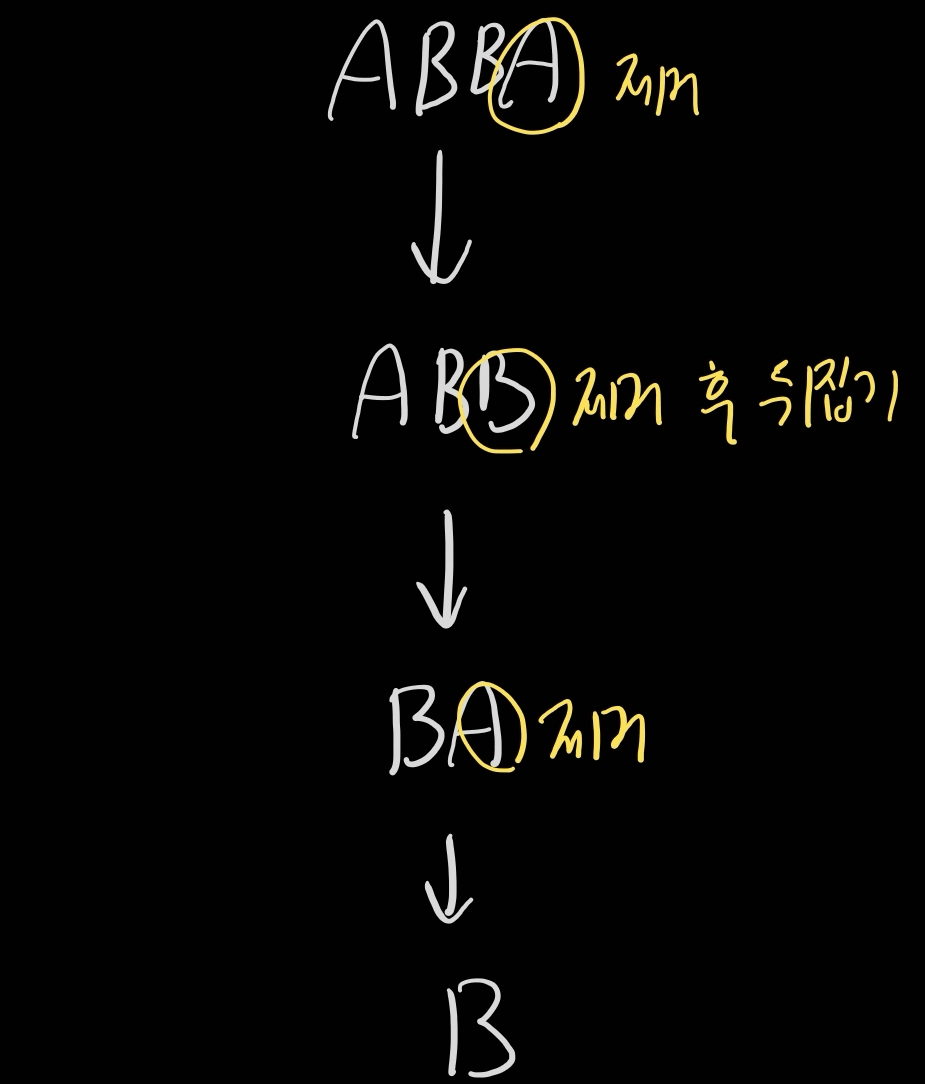 ABBA 제거
ABB 제거 후 뒤집기
BA 제거
B